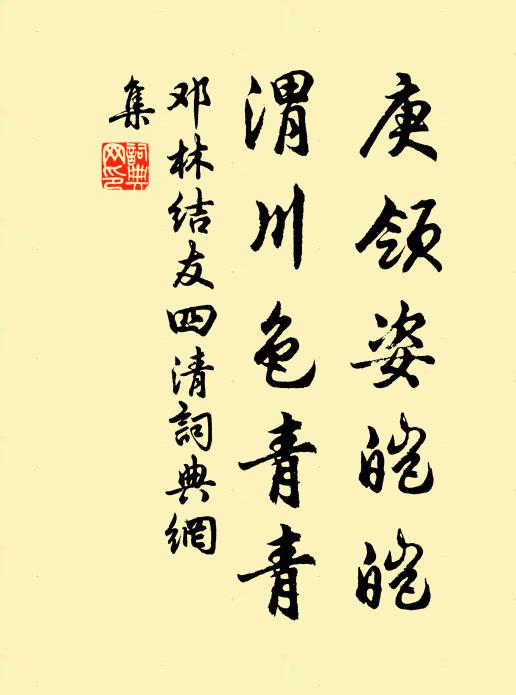 庚领姿皑皑
渭川色青青
邓林结友四清詞典網
集
詞典
网印